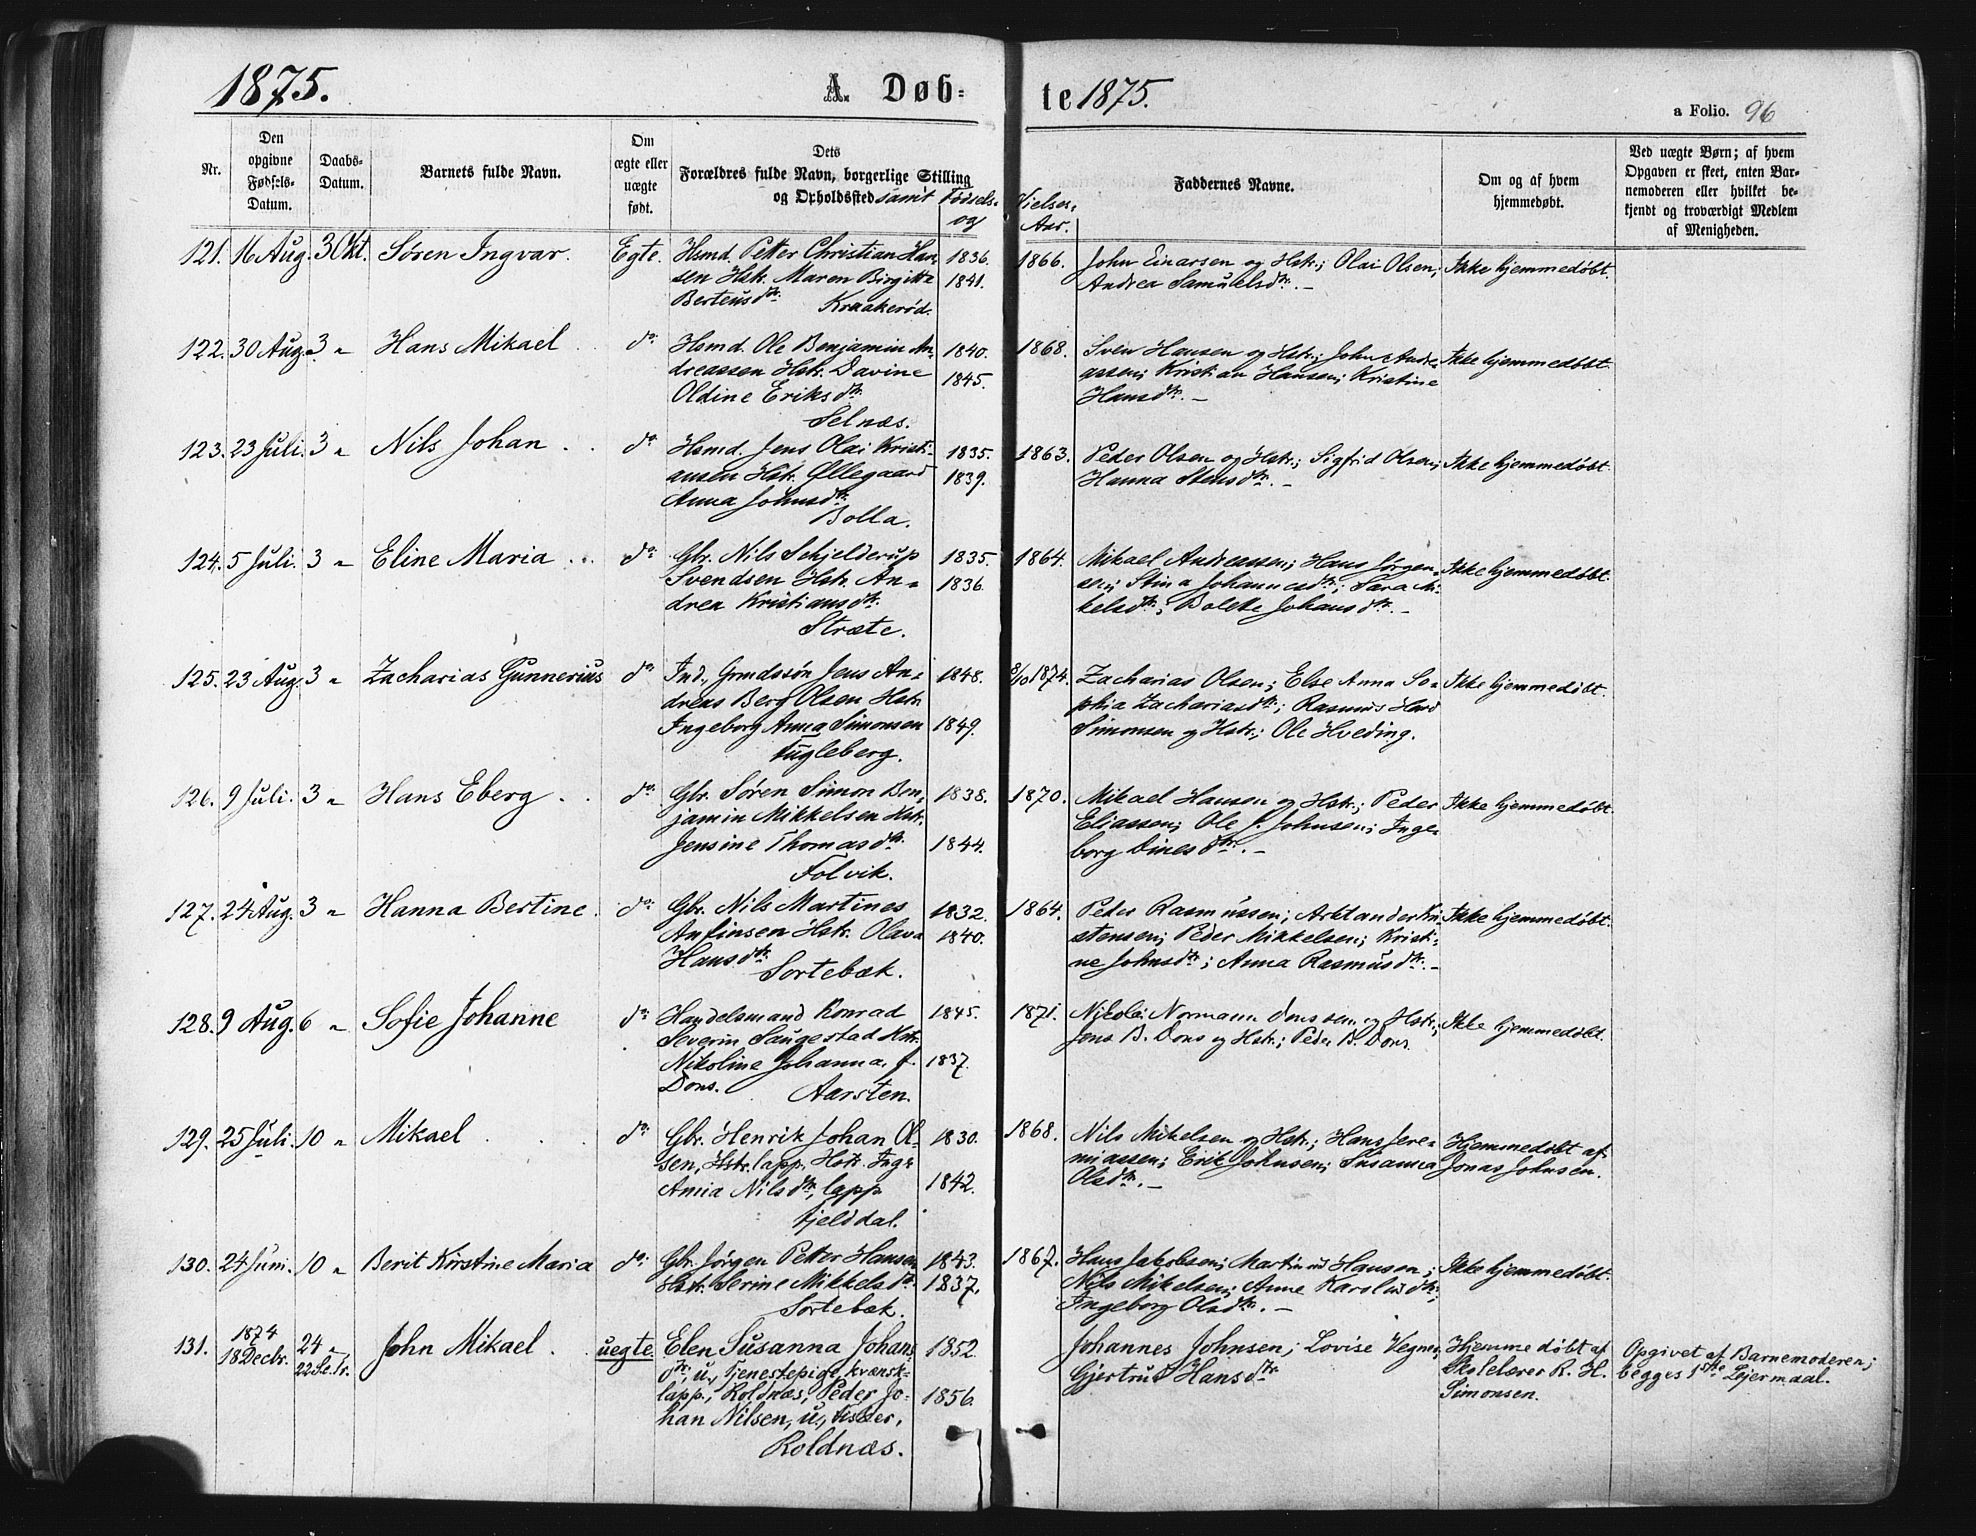 1875.
A. Døb-
te 1875.
a Folio. 96
Nr.
Den opgivne Fødsels-Datum.
Daabs-Datum.
Barnets fulde Navn.
Om ægte eller uægte født.
Dets Forældres fulde Navn, borgerlige Stilling og Opholdssted samt
Fødsels- og
Vielses-Aar.
Faddernes Navne.
Om og af hvem hjemmedøbt.
Ved uægte Børn; af hvem Opgaven er skeet, enten Barnemoderen eller hvilket bekjendt og troværdigt Medlem af Menigheden.
121. 16 Aug. 3 Okt. Søren Ingvar. Egte. Hsmd. Petter Christian Han- 1836. 1866. John Einarsen og Hstr.; Olai Olsen; Ikke hjemmedøbt.
sen Hstr. Maren Birgitte 1841. Andrea Samuelsdtr. –
Berteusdtr.
Kraakerød.
122. 30 Aug. 3 „ Hans Mikael . . do. Hsmd. Ole Benjamin An- 1840. 1868. Sven Hansen og Hstr.; John Andre- Ikke hjemmedøbt.
dreassen Hstr. Davine 1845. assen; Kristian Hansen; Kristine
Oldine Eriksdtr. Hansdtr. –
Selnæs.
123. 23 Juli. 3 „ Nils Johan . . do. Hsmd. Jens Olai Kristi- 1835. 1863. Peder Olsen og Hstr.; Sigfrid Olsen; Ikke hjemmedøbt.
ansen Hstr. Ollegaard 1839. Hanna Stensdtr. –
Anna Johnsdtr.
Bolla.
124. 5 Juli. 3 „ Eline Maria . . do. Gbr. Nils Schjelderup 1835. 1864. Mikael Andreassen; Hans Jørgen- Ikke hjemmedøbt.
Svendsen Hstr. An- 1836. sen; Stina Johannesdtr.; Sara Mi-
drea Kristiansdtr. kelsdtr.; Bolette Johansdtr. –
Stræte.
125. 23 Aug. 3 „ Zacharias Gunnerius do. Ind., Grmdssøn Jens An- 1848. 8/10 1874. Zacharias Olsen; Else Anna So- Ikke hjemmedøbt.
dreas Berg Olsen Hstr. phia Zachariasdtr.; Rasmus Hard
Ingeborg Anna Simonsen 1849. Simonsen og Hstr.; Ole Hveding.
Fugleberg.
126. 9 Juli. 3 „ Hans Eberg . . do. Gbr. Søren Simon Ben- 1838. 1870. Mikael Hansen og Hstr.; Peder Ikke hjemmedøbt.
jamin Mikkelsen Hstr. Eliassen; Ole J. Johnsen; Inge-
Jensine Thomasdtr. 1844. borg Dinesdtr. –
Folvik.
127. 24 Aug. 3 „ Hanna Bertine. do. Gbr. Nils Martines 1832. 1864. Peder Rasmussen; Arktander Kri- Ikke hjemmedøbt.
Anfinsen Hstr. Olava 1840. stensen; Peder Mikkelsen; Kristi-
Hansdtr. ne Johnsdtr.; Anna Rasmusdtr. –
Sortebæk.
128. 9 Aug. 6 „ Sofie Johanne do. Handelsmand Konrad 1845. 1871. Nikolai Normann Dons sen og Hstr.; Ikke hjemmedøbt.
Severin Saugestad Hstr. Jens B. Dons og Hstr.; Peder B. Dons.
Nikoline Johanna, f. 1837.
Dons. Aarsten.
129. 25 Juli. 10 „ Mikael . . . do. Gbr. Henrik Johan Ol- 1830. 1868. Nils Mikelsen og Hstr.; Hans Jere- Hjemmedøbt af
sen, lapp. Hstr. Inge miassen; Erik Johnsen; Susanna Jonas Johnsen.
Anna Nilsdtr., lapp 1842. Olsdtr. –
Fjelddal.
130. 24 Juni. 10 „ Berit Kirstine Maria do. Gbr. Jørgen Petter Hansen 1843. 1867. Hans Jakobsen; Martinus Hansen; Ikke hjemmedøbt.
Hstr. Serine Mikkelsdtr. 1837. Nils Mikelsen; Anne Karolusdtr.;
Sortebæk. Ingeborg Olsdtr. –
131. 1874 18 Decbr. 24 „ John Mikael . uegte. Elen Susanna Johans- 1852. Johannes Johnsen; Lovise Vegner; Hjemmedøbt af Opgivet af Barnemoderen;
22 S. e. Tr. dtr., u., Tjenestepige, kvensk- Gjertrud Hansdtr. Skolelærer R. H. begges 1ste Lejermaal.
lapp., Roldnæs, Peder Jo- 1856. Simonsen.
han Nilsen, u., Fisker,
Roldnæs.